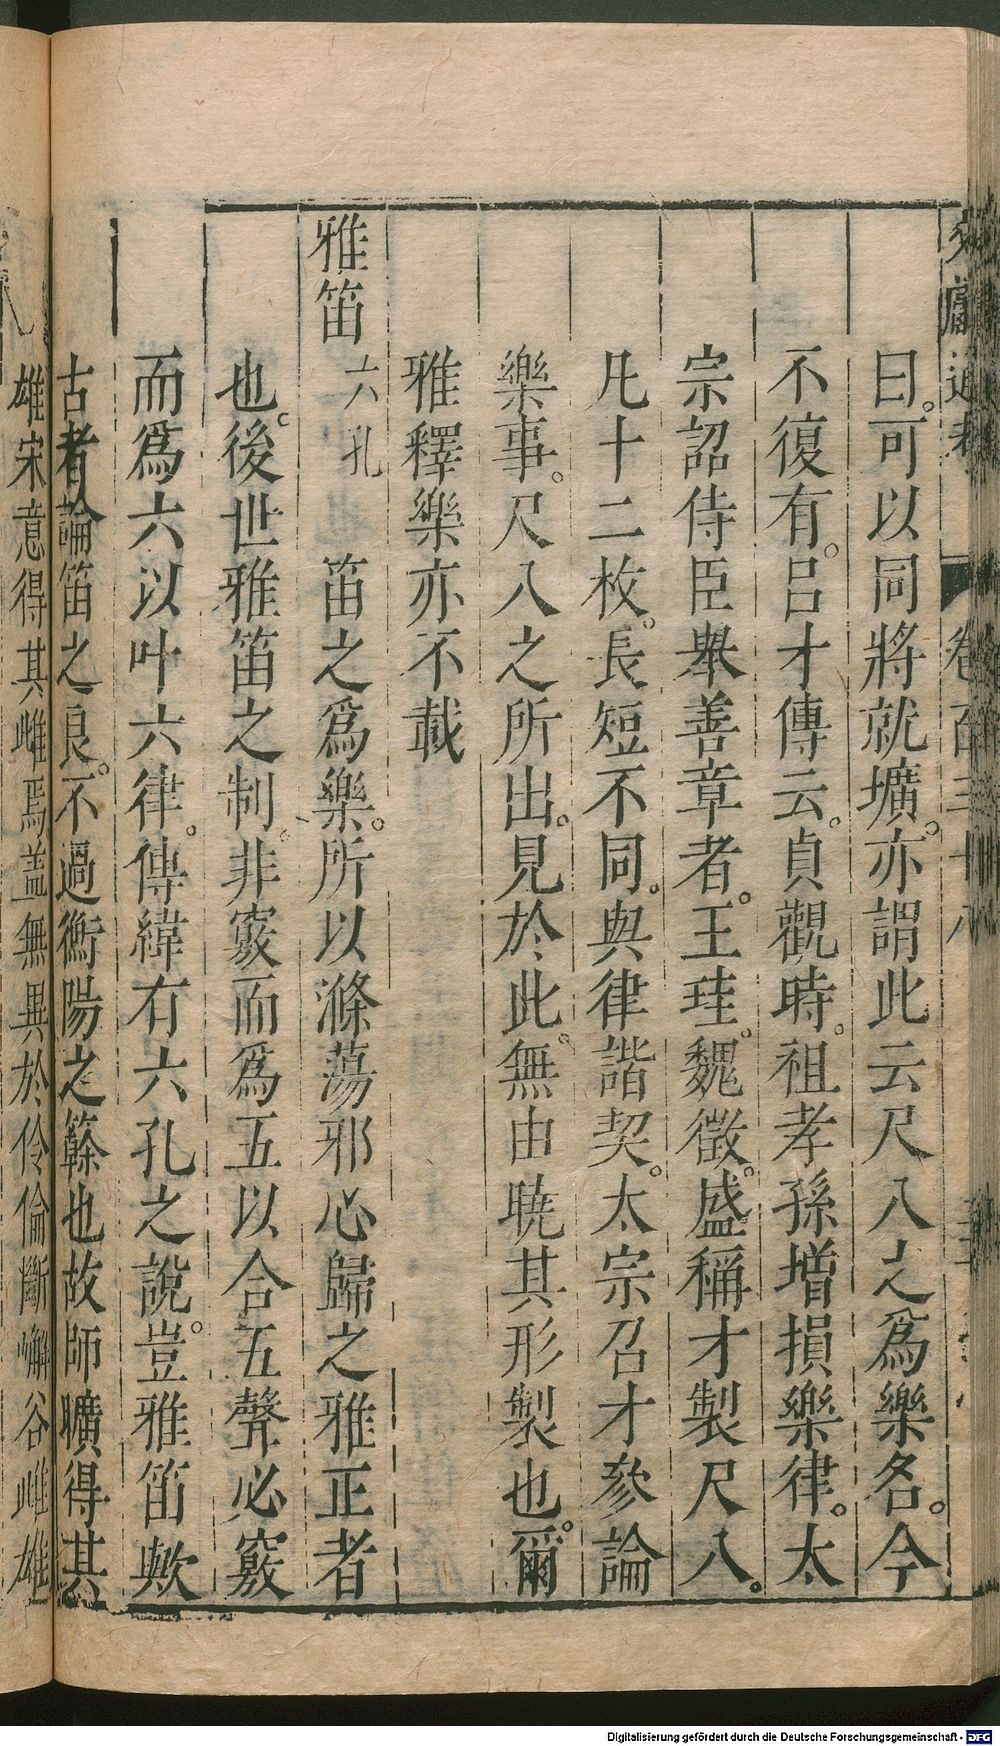 文獻通考 卷百三十八
曰。可以同將就壙。亦謂此云尺八之爲樂名。今
不復有。呂才傳云。貞觀時。祖孝孫增損樂律。太
宗詔侍臣舉善章者。王珪。魏徵。盛稱才製尺八。
凡十二枚。長短不同。與律諧契。太宗召才參論
樂事。尺八之所出。見於此。無由曉其形製也。爾
雅釋樂亦不載
雅笛 六孔 笛之爲樂。所以滌蕩邪心歸之雅正者
也。後世雅笛之制。非竅而爲五以合五聲必竅
而爲六以叶六律。傳緯有六孔之說。豈雅笛歟
古者論笛之良。不過衡陽之簳也故師曠得其
雄宋意得其雌焉蓋無異於伶倫斷嶰谷雌雄
Digitalisierung gefördert durch die Deutsche Forschungsgemeinschaft - DFG